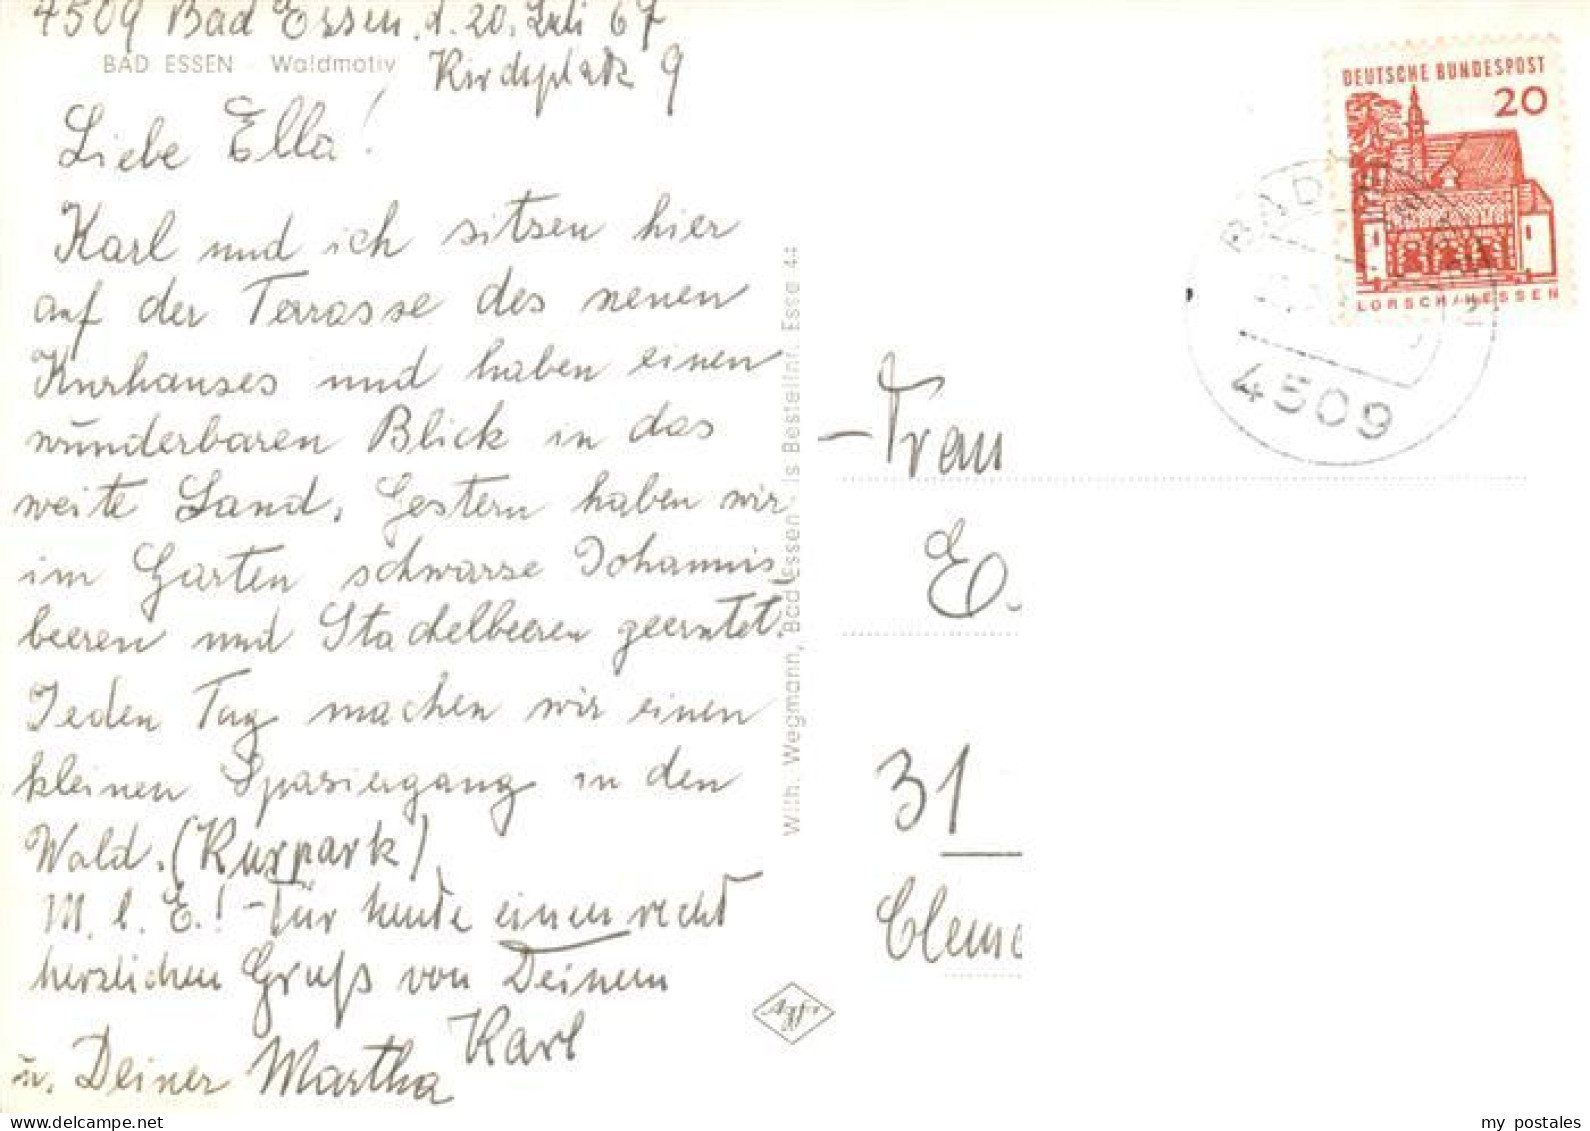 4509 Bad Essen, d. 20. Juli 67
BAD ESSEN - Waldmotiv
Kirchplatz 9
Liebe Ella!
Karl und ich sitzen hier
auf der Terrasse des neuen
Kurhauses und haben einen
wunderbaren Blick in das
weite Land. Gestern haben wir
im Garten schwarze Johannis
beeren und Stachelbeeren geerntet.
Jeden Tag machen wir einen
kleinen Spaziergang in den
Wald. (Kurpark)
M. l. E.! - Für heute einen recht
herzlichen Gruß von Deinem
Karl
u. Deiner Martha
Wilh. Wegmann, Bad Essen - Is Bestellnr. Esse 44
Agfa
DEUTSCHE BUNDESPOST
20
LORSCH/HESSEN
BAD
4509
Frau
E.
31
Cleme
my postales